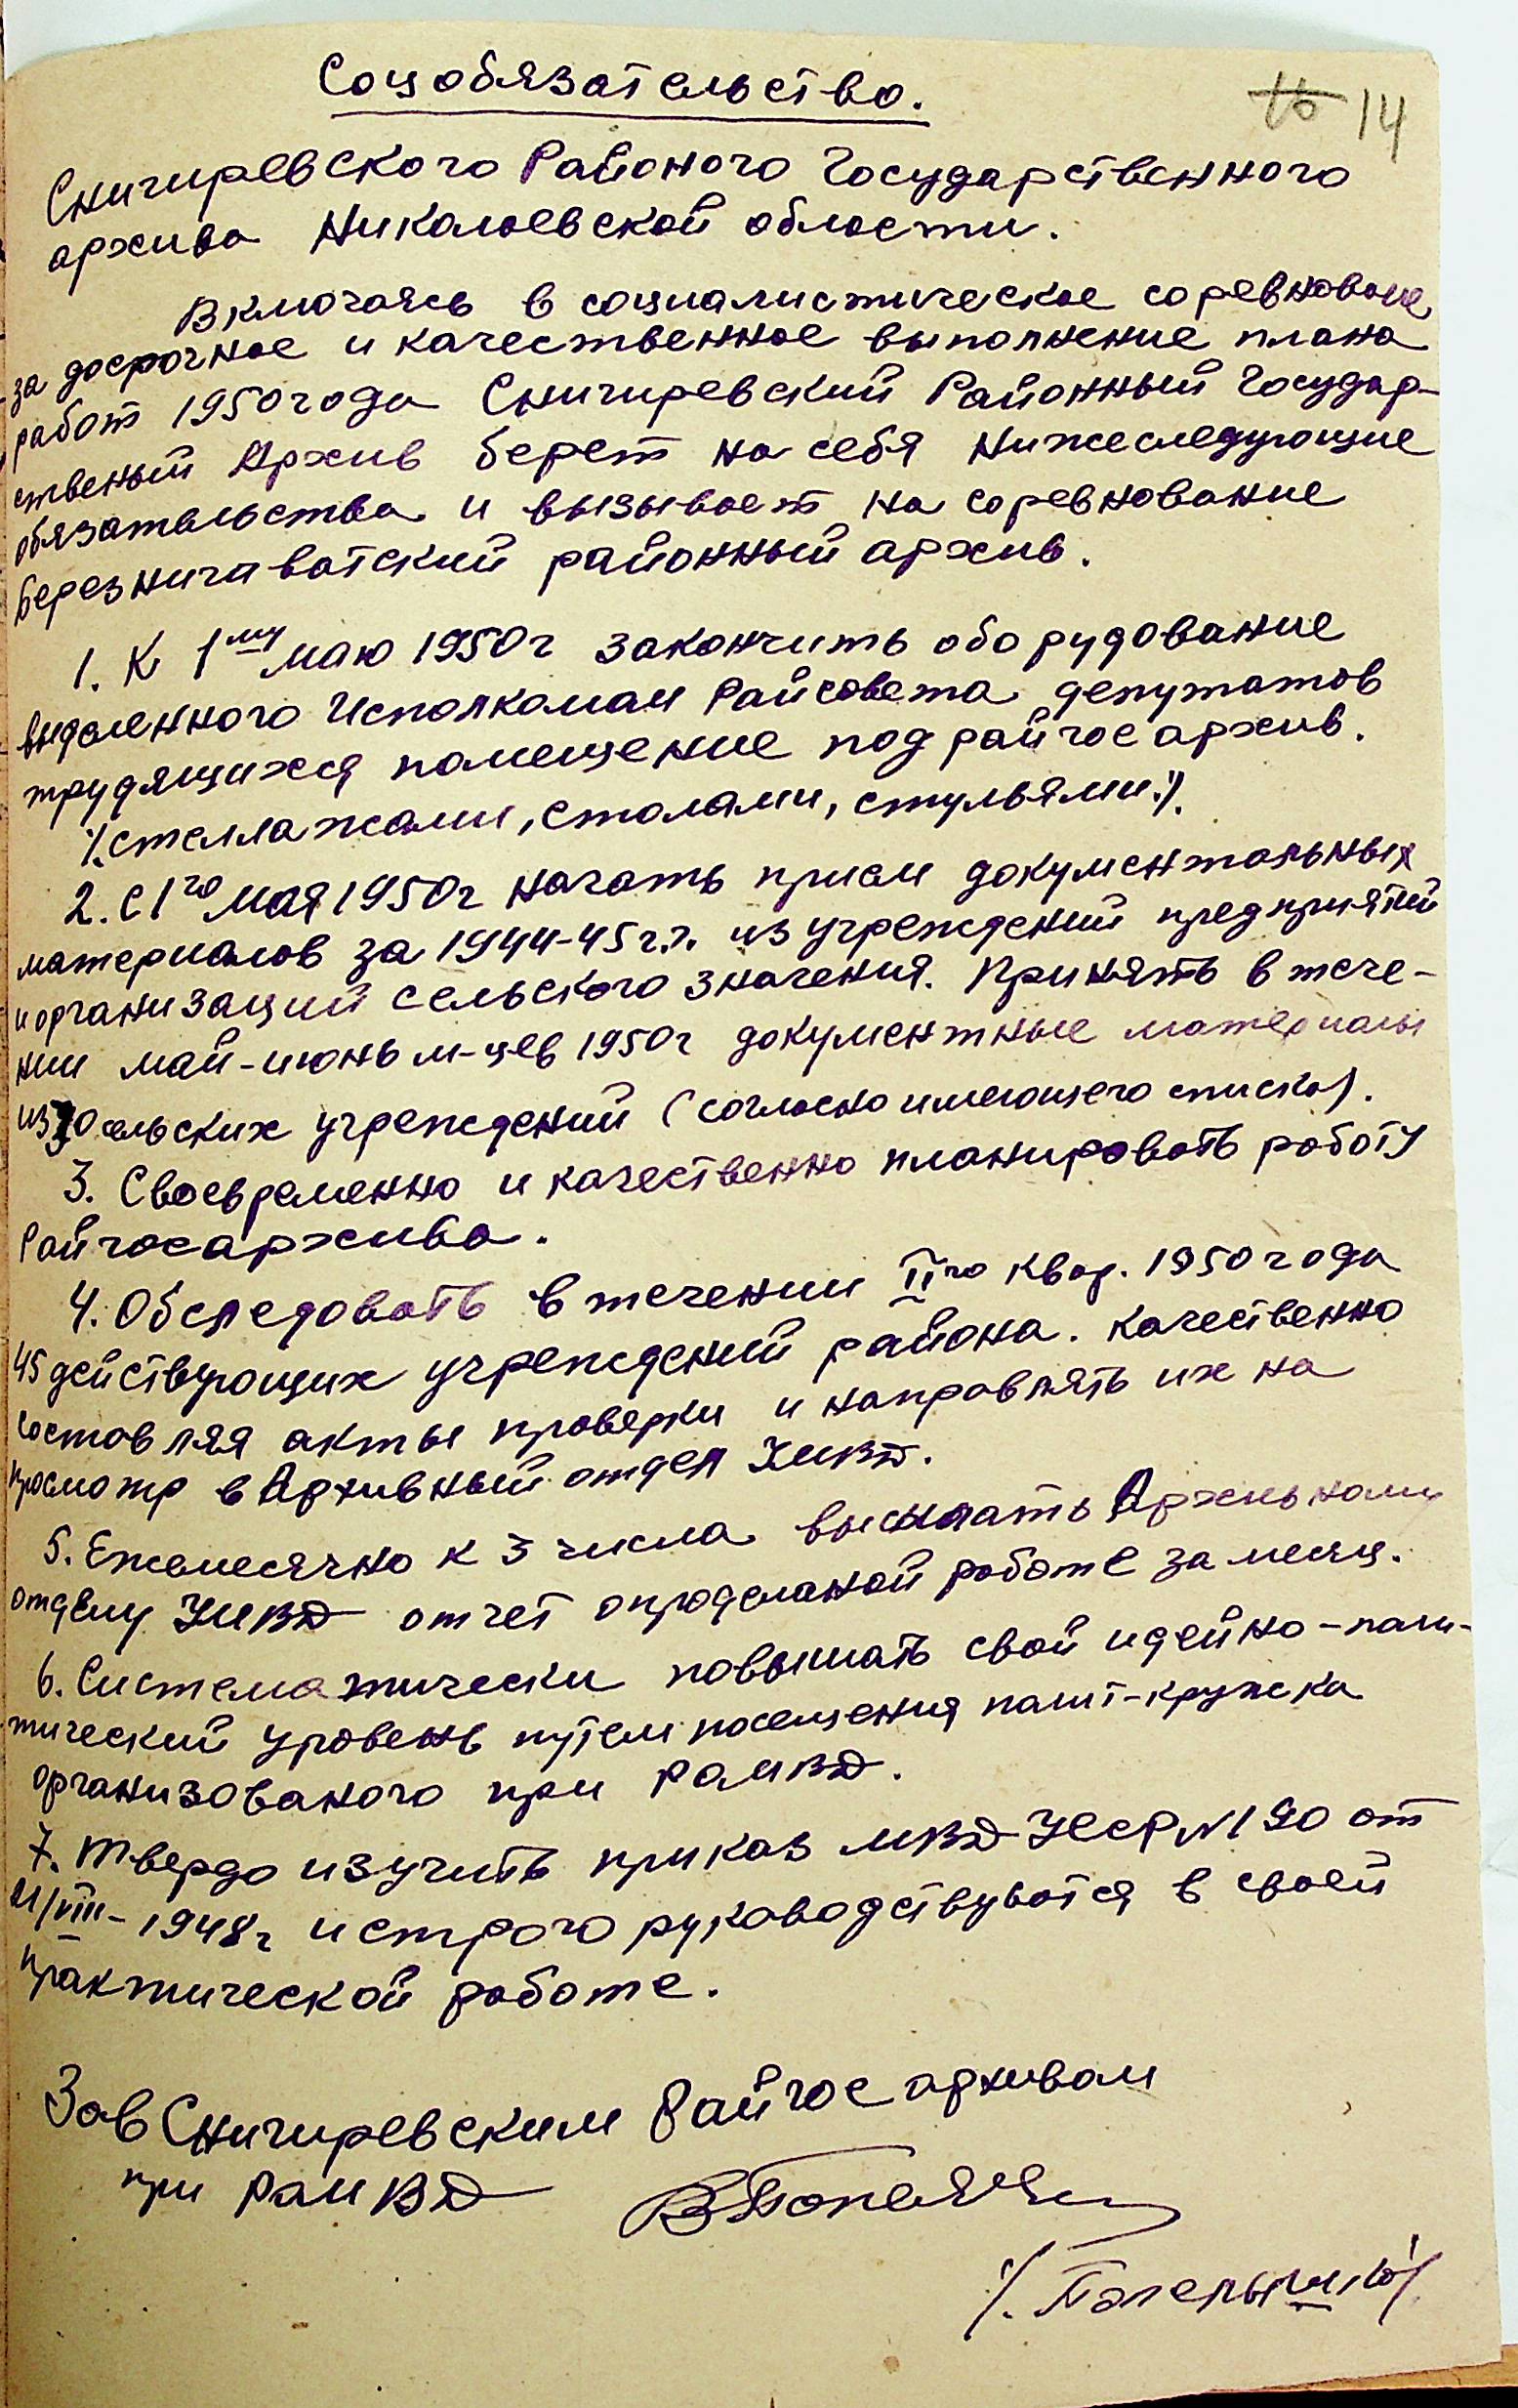 Соцобязательство.
16 14
Снигиревского Районого Государственного
архива Николаевской области.
Включаясь в социалистическое соревнование
за досрочное и качественное выполнение плана
работ 1950 года Снигиревский Районный Государ-
ственый Архив берет на себя нижеследующие
обязательства и вызывает на соревнование
Березнигиватский районный архив.
1. К 1му маю 1950г закончить оборудование
выделенного Исполкомам Райсовета депутатов
трудящихся помещение под райгосархив.
/.стеллажами, столами, стульями./.
2. С 1го мая 1950г начать прием документальных
материалов за 1944-45 г.г. из учреждений предприятий
и организаций сельского значения. Принять в тече-
нии май-июнь м-цев 1950г документные материалы
из 30 сельских учреждений (согласно имеющего списка).
3. Своевременно и качественно планировать работу
Райгосархива.
4. Обследовать в течении IIго квар. 1950 года
45 действующих учреждений района. Качественно
составляя акты проверки и направлять их на
просмотр в Архивный отдел УМВД.
5. Ежемесячно к 3 числа высылать Архивному
отделу УМВД отчет опроделаной работе за месяц.
6. Систематически повышать свой идейно-поли-
тический уровень путем посещения полит-кружка
организованого при РОМВД.
7. Твердо изучить приказ МВД УССР № 190 от
21/VIII-1948г и строго руководствуватся в своей
практической работе.
Зав Снигиревским Райгосархивом
при РОМВД